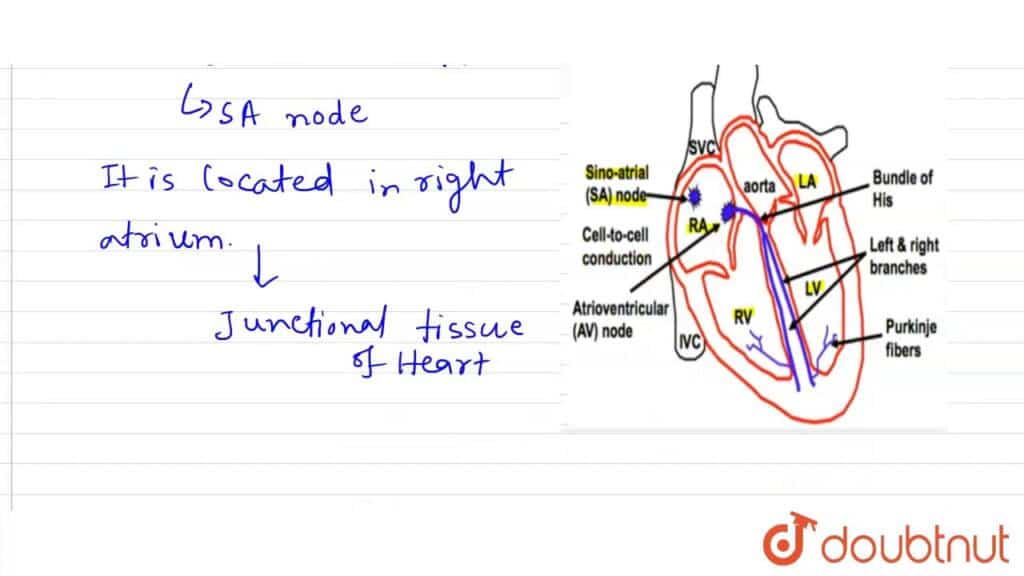 ↳ SA node
It is located in right
atrium.
↓
Junctional tissue
of Heart
SVC
Sino-atrial
(SA) node
aorta
LA
Bundle of
His
RA
Cell-to-cell
conduction
Left & right
branches
LV
Atrioventricular
(AV) node
RV
IVC
Purkinje
fibers
doubtnut